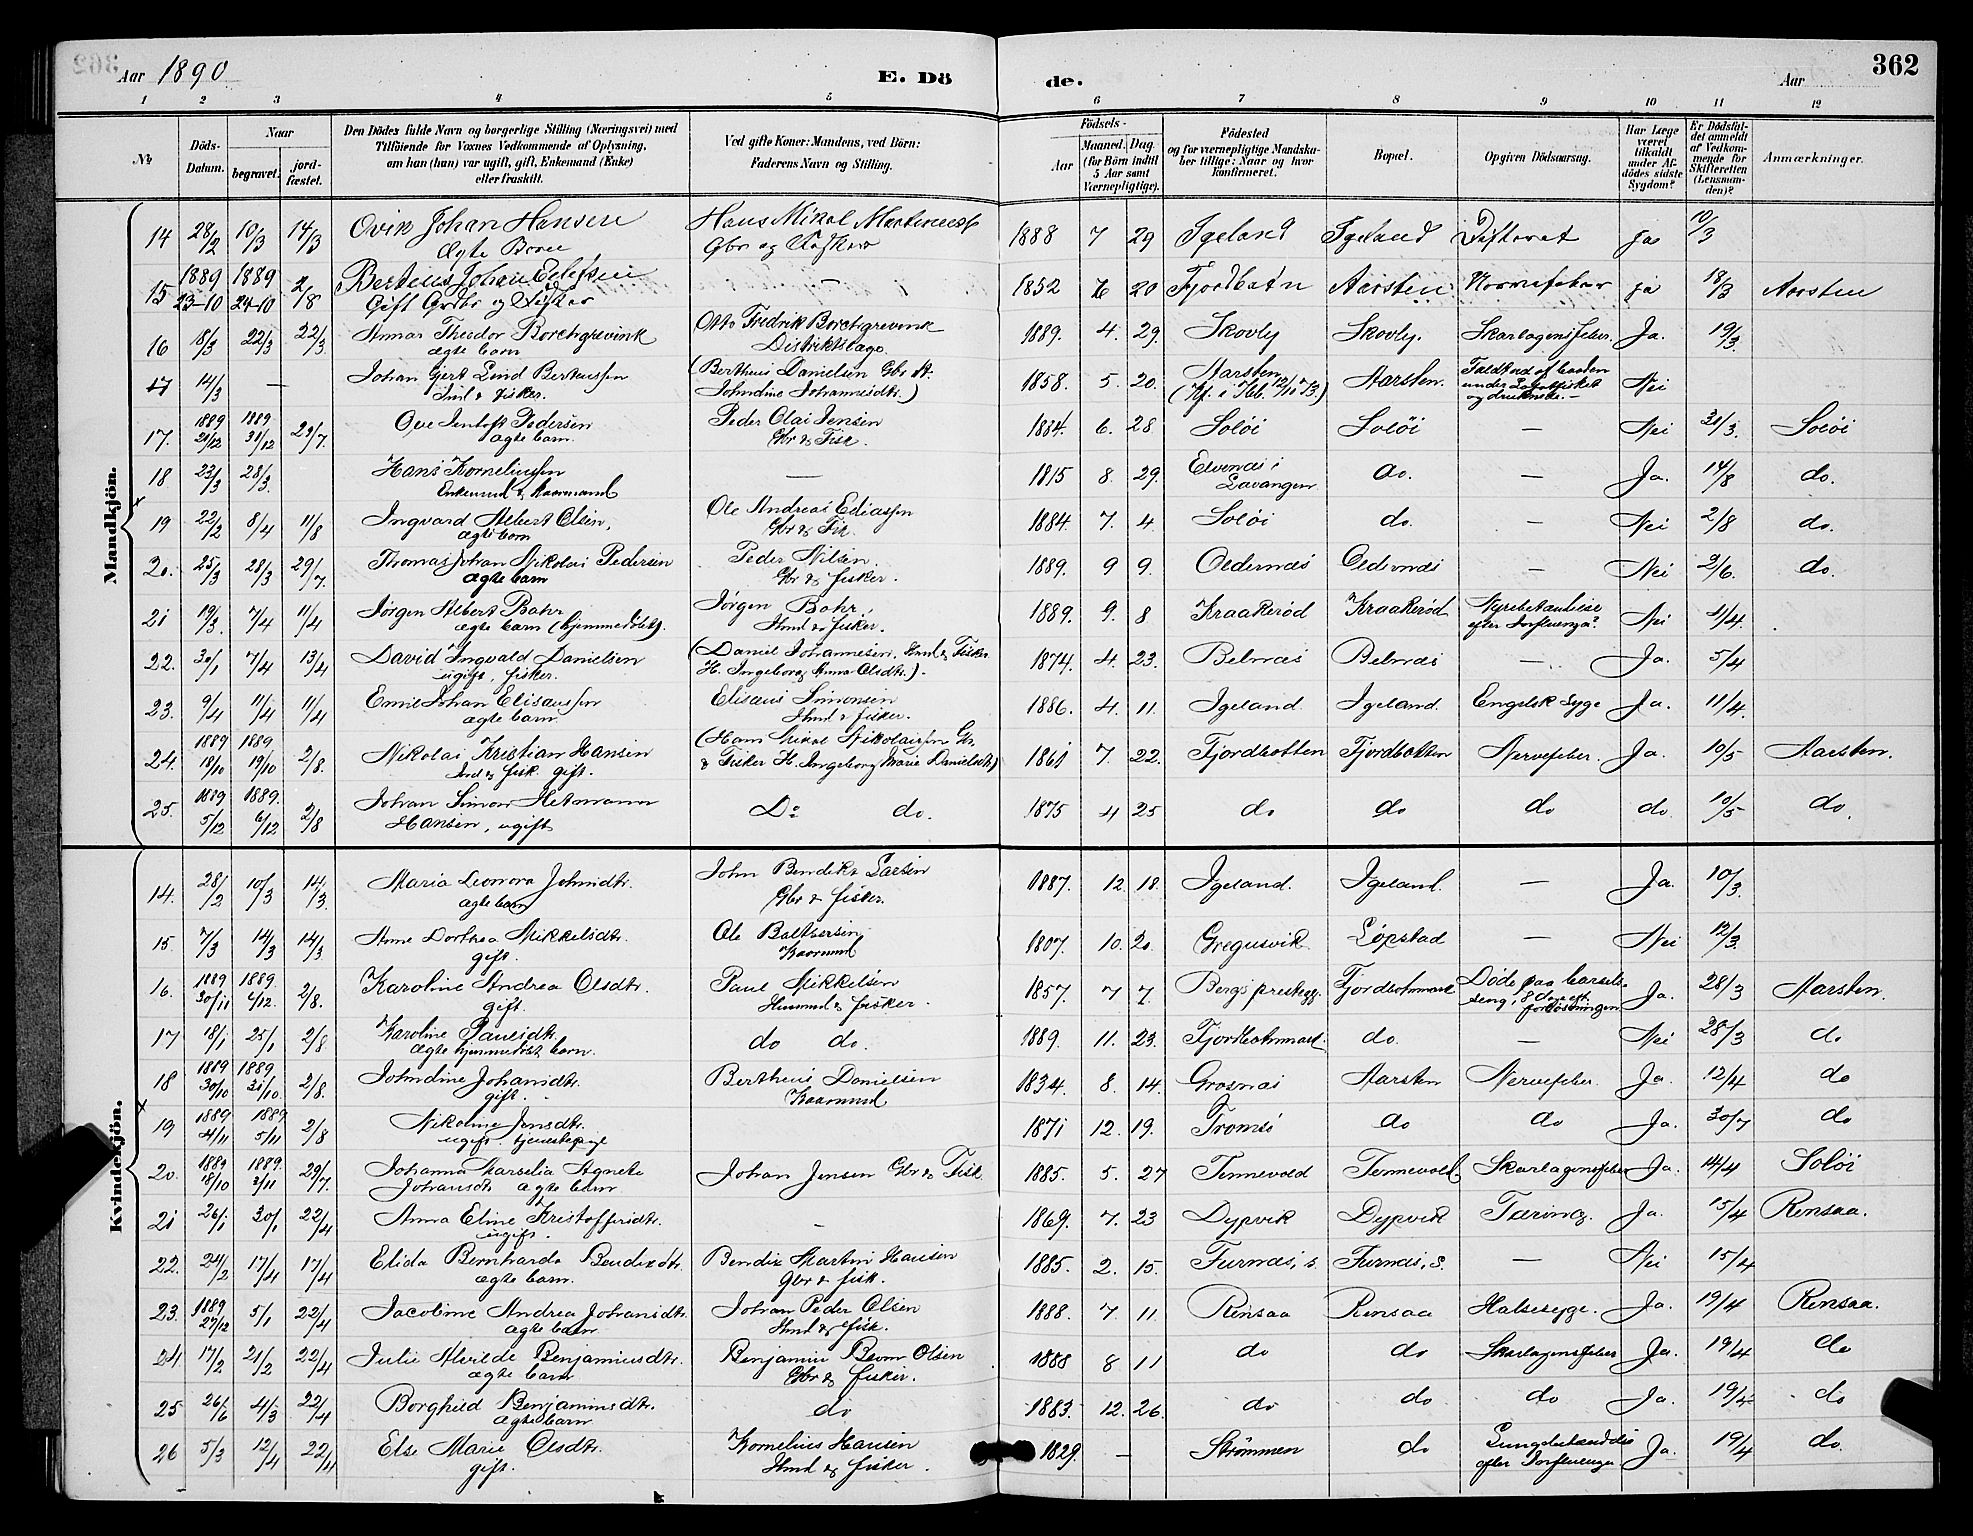 Aar 1890 E. Dö de. Aar 362
1 2 3 4 5 6 7 8 9 10 11 12
№ Döds-Datum. Naar begravet. jordfæstet. Den Dödes fulde Navn og borgerlige Stilling (Næringsvei) med Tilföiende for Voxnes Vedkommende af Oplysning, om han (hun) var ugift, gift, Enkemand (Enke) eller fraskilt. Ved gifte Koner: Mandens, ved Börn: Faderens Navn og Stilling. Födsels- Aar Maaned. Dag (for Börn indtil 5 Aar samt Værnepligtige). Födested og for værnepligtige Mandskaber tillige: Naar og hvor konfirmeret. Bopæl. Opgiven Dödsaarsag. Har Læge været tilkaldt under Afdödes sidste Sygdom? Er Dödsfaldet anmeldt af Vedkommende for Skifteretten (Lensmanden)? Anmærkninger.
Mandkjön.
14 28/2 10/3 14/3 Ovik Johan Hansen Hans Mikal 1888 7 29 Igeland Igeland Difterit ja 10/3
Ægte Barn Gbr og Fisker
15 1889 23-10 1889 24-10 2/8 Berteus Johan — 1852 20 Fjordbotn Aarsten ja 18/3 Aarsten
Gift Grdbr og Fisker
16 18/3 22/3 22/3 Annar Theodor Borchgrevink Otto Fredrik Borchgrevink 1889. 4. 29. Skovly Skovly. Skarlagensfeber. Ja. 19/3.
ægte barn Distriktslæge
17 14/3 — Johan Gjert Lind Berteussen (Bertheus Danielsen Gbr 1858. 5. 20. Aarsten Aarsten. Faldt ud af baaden Nei
Ind. & fisker. Johndine Johannesdtr.) under Lofotfisket
og druknede. —
17. 1889 21/12 1889 31/12 29/7. Ove Jentoft Pedersen Peder Olai Jensen 1884. 6. 28 Soløi Soløi — Nei 31/3. Soløi
ægte barn. Gbr & Fisk.
18 23/3 28/3. Hans Korneliussen — 1815 8. 29. Elvenæs i Lavangen do. — Ja. 14/8 do.
Enkemd & Kaarmand
19 22/2 8/4 11/8 Ingvard Albert Olsen, Ole Andreas Ediassen 1884. 7. 4. Soløi do. — Nei 2/8 do.
ægte barn Gbr & Fis.
20. 25/3 28/3 29/7. Thomas Johan Nikolai Pedersen Peder Nilsen 1889. 9 9. Oldernæs Oldernæs — Nei 2/6. do.
ægte barn Gbr & fisker.
21 19/3. 7/4 11/4 Jørgen Albert Bahr Jørgen Bahr, 1889. 9. 8 Kraakerød Kraakerød Nyrebetændelse Nei 11/4.
ægte barn (hjemmedøbt). Hmd & fisker. efter Influenza?
22. 30/1 7/4 13/4 David Ingvald Danielsen (Daniel Johannesen, Hmd & Fisker 1874. 4. 23. Belnæs Belnæs — Ja. 5/4
ugift, fisker. H. Ingeborg Anna Olsdtr.).
23. 9/4 11/4 11/4 Emil Johan Elisæussen Elisæus Simonsen 1886. 4. 11. Igeland. Igeland. Engelsk Syge Ja. 11/4.
ægte barn Hmd & fisker.
24. 1889 18/10 1889 19/10 2/8. Nikolai Kristian Hansen (Hans Mikal Nikolaissen Gbr. 1861 7. 22. Fjordbotten Fjordbotten Nervefeber. Ja. 10/5 Aarsten.
Ind & fisk. gift. & Fisker H. Ingeborg Marie Danielsdtr)
25. 1889 5/12 1889. 6/12 2/8 Johan Simon Hetmann Do do. 1875 4 25 do do do do 10/5 do.
Hansen, ugift
Kvindekjön.
14. 28/2 10/3 14/3. Maria Leonora Johnsdtr. John Bendikt Larsen 1887. 12. 18. Igeland. Igeland. — Ja. 10/3.
ægte barn Gbr & fisker.
15. 7/3 14/3 14/3. Anne Dorthea Mikkelsdtr. Ole Balthersen 1807. 10. 20. Gregusvik Løpstad — Nei 12/3.
gift. Kaarmd
16. 1889 30/11 1889. 6/12. 2/8. Karoline Andrea Olsdtr. Paul Mikkelsen 1857. 7 7. Bergs prestegj. Fjordbotnmark Døde paa barsels- Ja. 28/3 Aarsten.
gift. Husmd & fisker. seng, 8 dage eft. forløsningen
17 18/1 25/1 2/8. Karoline Paulsdtr. do do. 1889. 11. 23. Fjordbotnmark. do. — Nei 28/3 do
ægte hjemmedøbt barn.
18 1889 30/10 1889. 31/10. 2/8. Johndine Johansdtr. Bertheus Danielsen 1834. 8. 14. Grasnæs Aarsten Nervefeber. Ja. 12/4 do
gift. Kaarmd
19 1889 4/11 1889 5/11 2/8 Nikoline Jensdtr. 1871 12. 19. Tromsø do do Ja. 30/7 do
ugift. tjenestepige
20. 1889 18/10 1889. 3/11 29/7. Johanna Marselia Agnete Johan Jensen Gbr & Fisk. 1885. 5. 27 Tennevold Tennevold Skarlagensfeber Ja. 14/4 Soløi
Johansdtr ægte barn.
21 26/1 30/1 22/4 Anna Eline Kristoffersdtr. — 1869. 7. 23 Dypvik Dypvik Tæring. Ja. 15/4 Rensaa.
ugift.
22. 24/2 17/4 17/4 Elida Bernharda Bendixdtr. Bendix Martin Hansen 1885. 2. 15. Furnæs, s. Furnæs, s. — Nei 15/4
ægte barn. Gbr & fisk.
23. 1889 27/12 5/1 22/4 Jacobine Andrea Johansdtr. Johan Peder Olsen 1888. 7 11 Rensaa Rensaa Halsesyge. Ja. 19/4 Rensaa.
ægte barn Hmd & fisk.
24 17/2 21/2 22/4 Julie Alvilde Benjaminsdtr. Benjamin Olsen 1888 8 11 do do Skarlagensfeber Ja. 19/4 do
ægte barn Gbr & fisker.
25 26/6 4/3 22/4 Borghild Benjaminsdtr. do 1883. 12. 26. do do do Ja. 19/4 do
ægte barn
26 5/3 12/4 22/4 Else Marie Olsdtr. Kornelius Hansen 1829. — Strømmen do Lungebetændelse Ja. 19/4 do.
gift. Hmd & fisker. efter Influenza